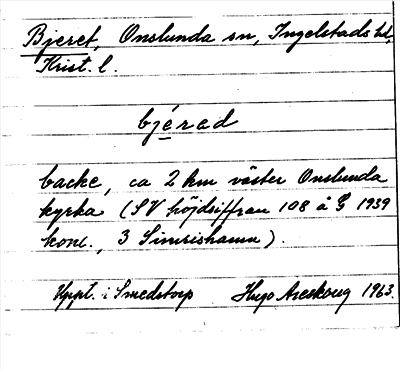 Bjeret, Onslunda sn, Ingelstads hd,
Krist. l.
bjérad
backe, ca 2 km väster Onslunda
kyrka (SV höjdsiffran 108 å G 1939
konc., 3 Simrishamn).
Uppt. i Smedstorp Hugo Areskoug 1963.